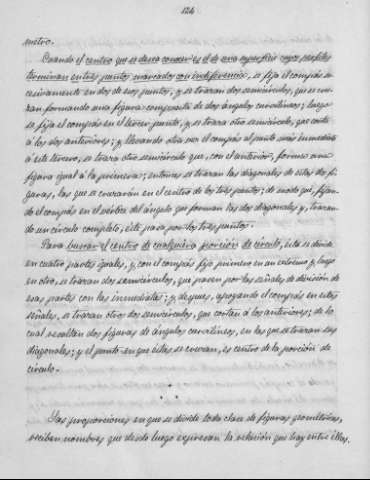 124
metro.
Cuando el centro que se desea conocer es el de una superficie cuyos perfiles
terminan en tres puntos marcados con indiferencia, se fija el compás su-
cesivamente en dos de esos puntos, y se trazan dos semicírculos, que se cru-
zan formando una figura compuesta de dos ángulos curvilíneos; luego
se fija el compás en el tercer punto, y se traza otro semicírculo, que corte
á los dos anteriores; y llevando otra vez el compás al punto más inmediato
á este tercero, se traza otro semicírculo que, con el anterior, forma una
figura igual á la primera; entonces se trazan las diagonales de estas dos fi-
guras, las que se cruzarán en el centro de los tres puntos; de modo que, fijan-
do el compás en el vértice del ángulo que forman las dos diagonales y, trazan-
do un círculo completo, éste pasa por los tres puntos.
Para buscar el centro de cualquiera porción de círculo, ésta se divide
en cuatro partes iguales, y con el compás fijo primero en un extremo y luego
en otro, se trazan dos semicírculos, que pasen por las señales de división de
esas partes con las inmediatas; y, después, apoyando el compás en estas
señales, se trazan otros dos semicírculos, que cortan á los anteriores; de lo
cual resultan dos figuras de ángulos curvilíneos, en las que se trazan sus
diagonales; y el punto en que éstas se cruzan, es centro de la porción de
círculo.
Las proporciones en que se divide toda clase de figuras geométricas,
reciben nombres que desde luego expresan la relación que hay entre ellas.